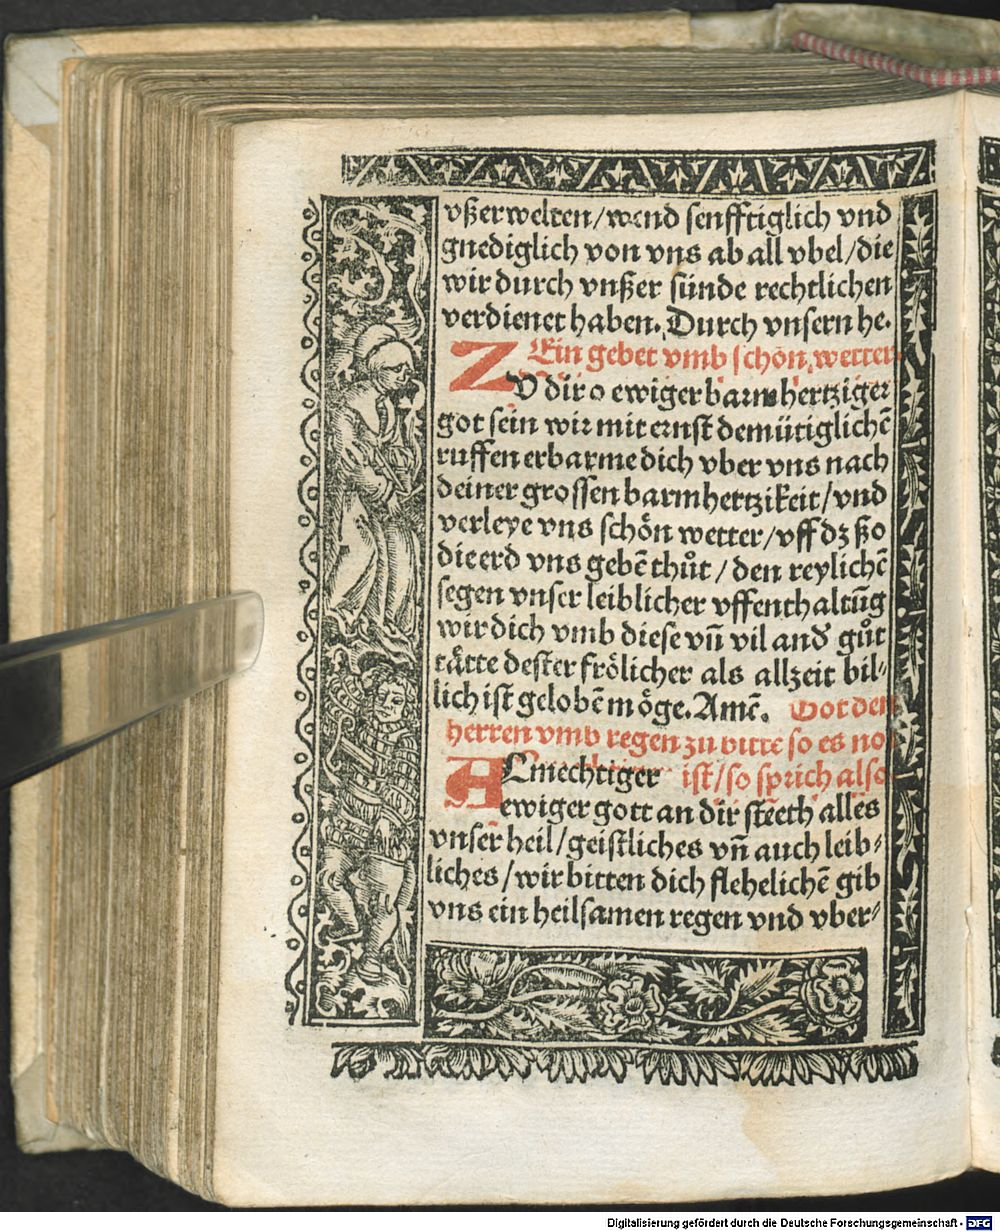 vßerwelten/wend senfftiglich vnd
gnediglich von vns ab all vbel/die
wir durch vnßer sünde rechtlichen
verdienet haben. Durch vnsern he.
Ein gebet vmb schon wetter
ZV dir o ewiger barmhertziger
got sein wir mit ernst demütiglichē
ruffen erbarme dich vber vns nach
deiner grossen barmhertzikeit/vnd
verleye vns schön wetter/vff dz ßo
die erd vns gebē thůt/den reylichē
segen vnser leiblicher vffenthaltūg
wir dich vmb diese vn̄ vil and' gůt
tätte dester frölicher als allzeit bil⸗
lich ist gelobē möge. Amē. Got den
herren vmb regen zu bitte so es not
ist/so sprich also
ALmechtiger
ewiger gott an dir steeth alles
vnser heil/geistliches vn̄ auch leib⸗
liches/wir bitten dich flehelichē gib
vns ein heilsamen regen vnd vber⸗
Digitalisierung gefördert durch die Deutsche Forschungsgemeinschaft - DFG